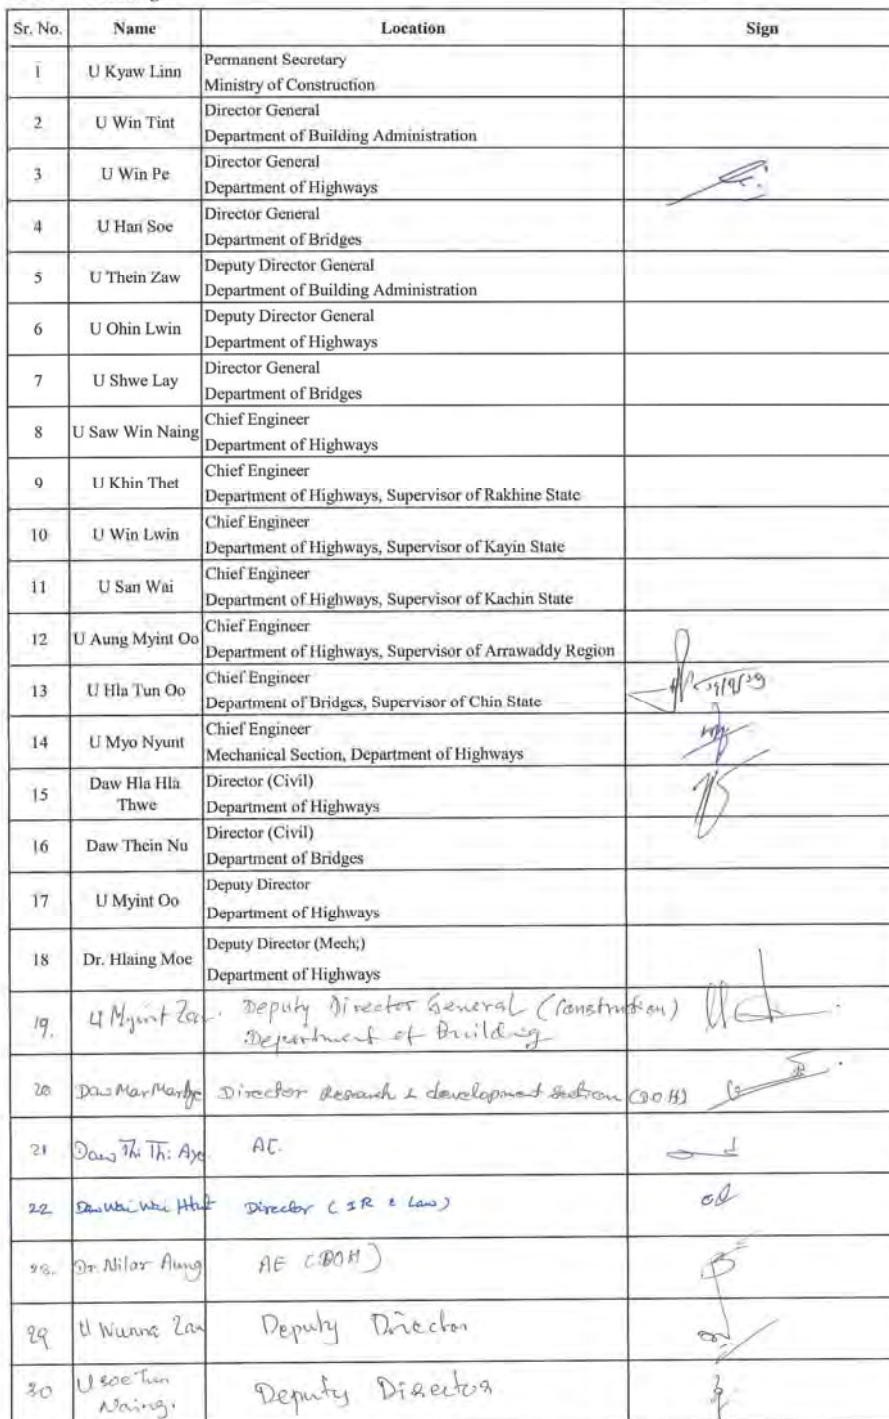 Sr. No. Name Location Sign
1 U Kyaw Linn Permanent Secretary
Ministry of Construction
2 U Win Tint Director General
Department of Building Administration
3 U Win Pe Director General
Department of Highways
4 U Han Soe Director General
Department of Bridges
5 U Thein Zaw Deputy Director General
Department of Building Administration
6 U Ohin Lwin Deputy Director General
Department of Highways
7 U Shwe Lay Director General
Department of Bridges
8 U Saw Win Naing Chief Engineer
Department of Highways
9 U Khin Thet Chief Engineer
Department of Highways, Supervisor of Rakhine State
10 U Win Lwin Chief Engineer
Department of Highways, Supervisor of Kayin State
11 U San Wai Chief Engineer
Department of Highways, Supervisor of Kachin State
12 U Aung Myint Oo Chief Engineer
Department of Highways, Supervisor of Arrawaddy Region
13 U Hla Tun Oo Chief Engineer
Department of Bridges, Supervisor of Chin State
14 U Myo Nyunt Chief Engineer
Mechanical Section, Department of Highways
15 Daw Hla Hla Thwe Director (Civil)
Department of Highways
16 Daw Thein Nu Director (Civil)
Department of Bridges
17 U Myint Oo Deputy Director
Department of Highways
18 Dr. Hlaing Moe Deputy Director (Mech;)
Department of Highways
19. U Myint Zaw. Deputy Director General (Construction)
Department of Building
20 Daw Mar Mar Director Research & development Section (DOH)
21 Daw Thi Thi Aye AE.
22 Daw Wai Wai Htut Director (IR & Law)
Dr. Nilar Aung AE (DOH)
29 U Wunna Zaw Deputy Director
30 U Soe Tun Naing. Deputy Director